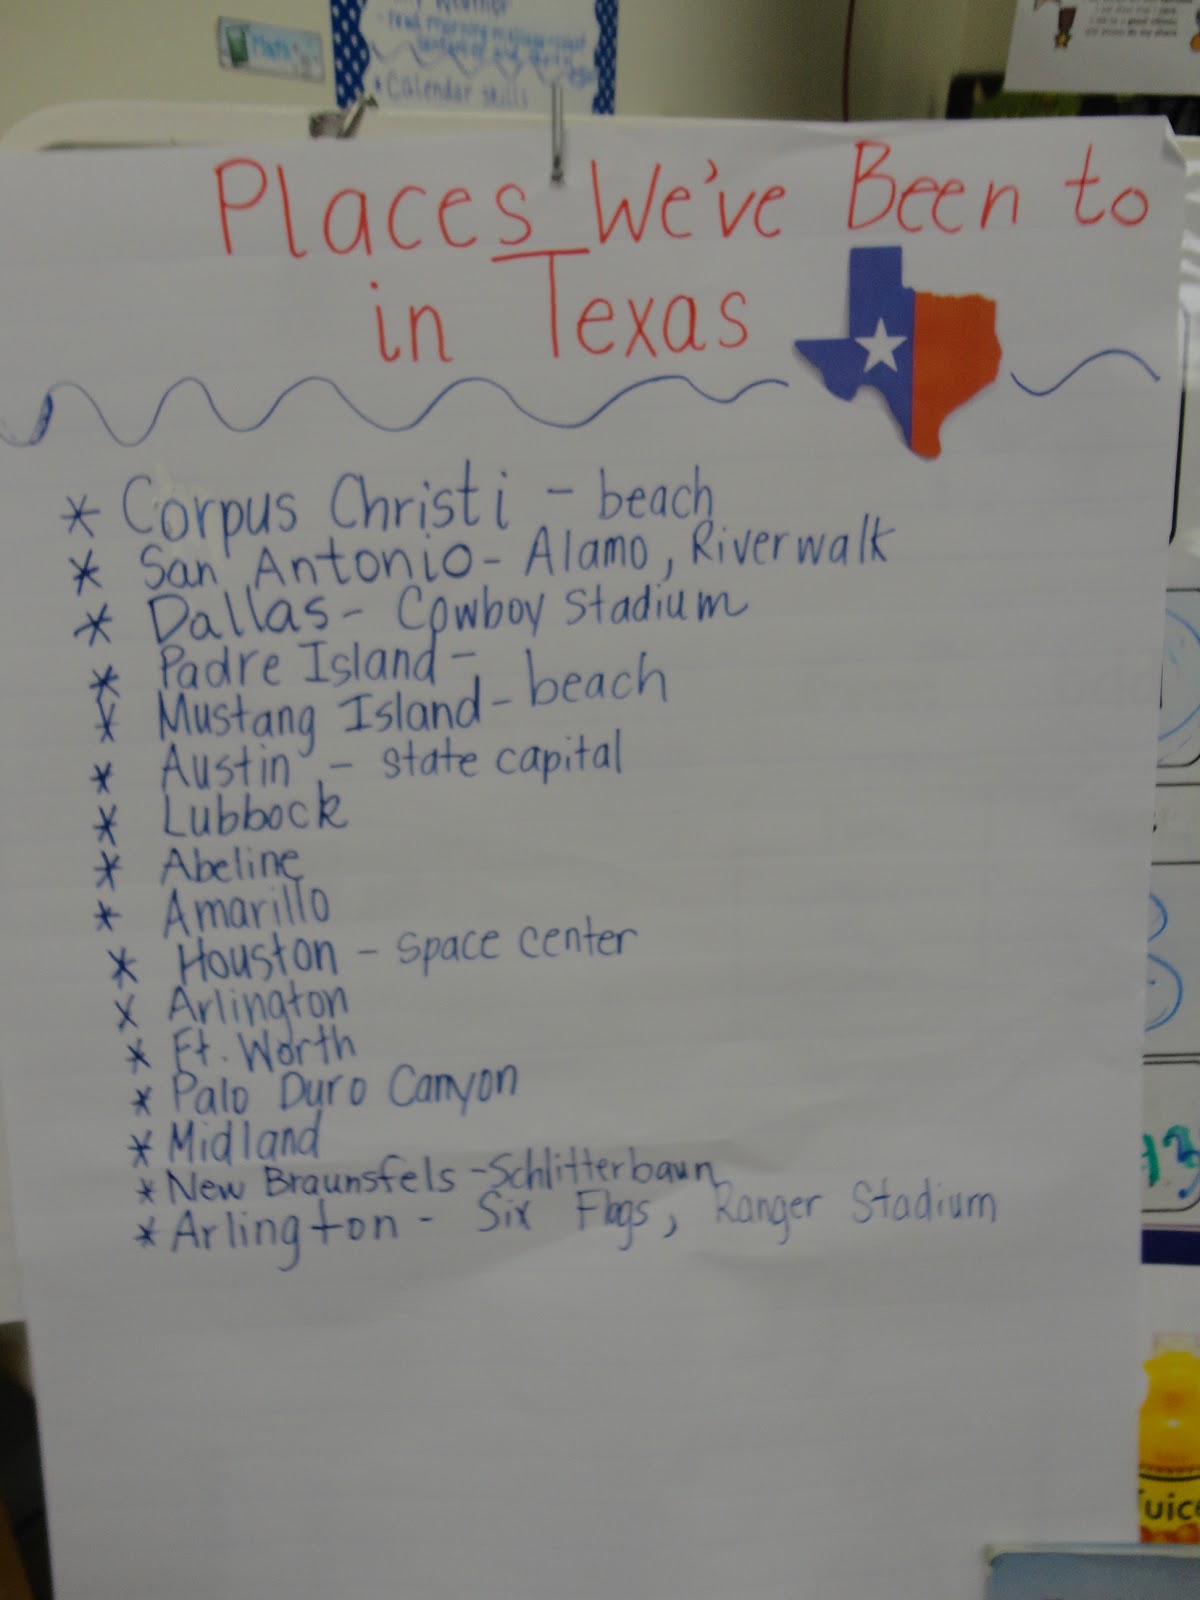 Math
• Calendar skills
Places We've Been to
in Texas
* Corpus Christi - beach
* San Antonio - Alamo, Riverwalk
* Dallas - Cowboy Stadium
* Padre Island -
* Mustang Island - beach
* Austin - state capital
* Lubbock
* Abeline
* Amarillo
* Houston - space center
* Arlington
* Ft. Worth
* Palo Duro Canyon
* Midland
* New Braunsfels - Schlitterbaun
* Arlington - Six Flags, Ranger Stadium
13
Juice